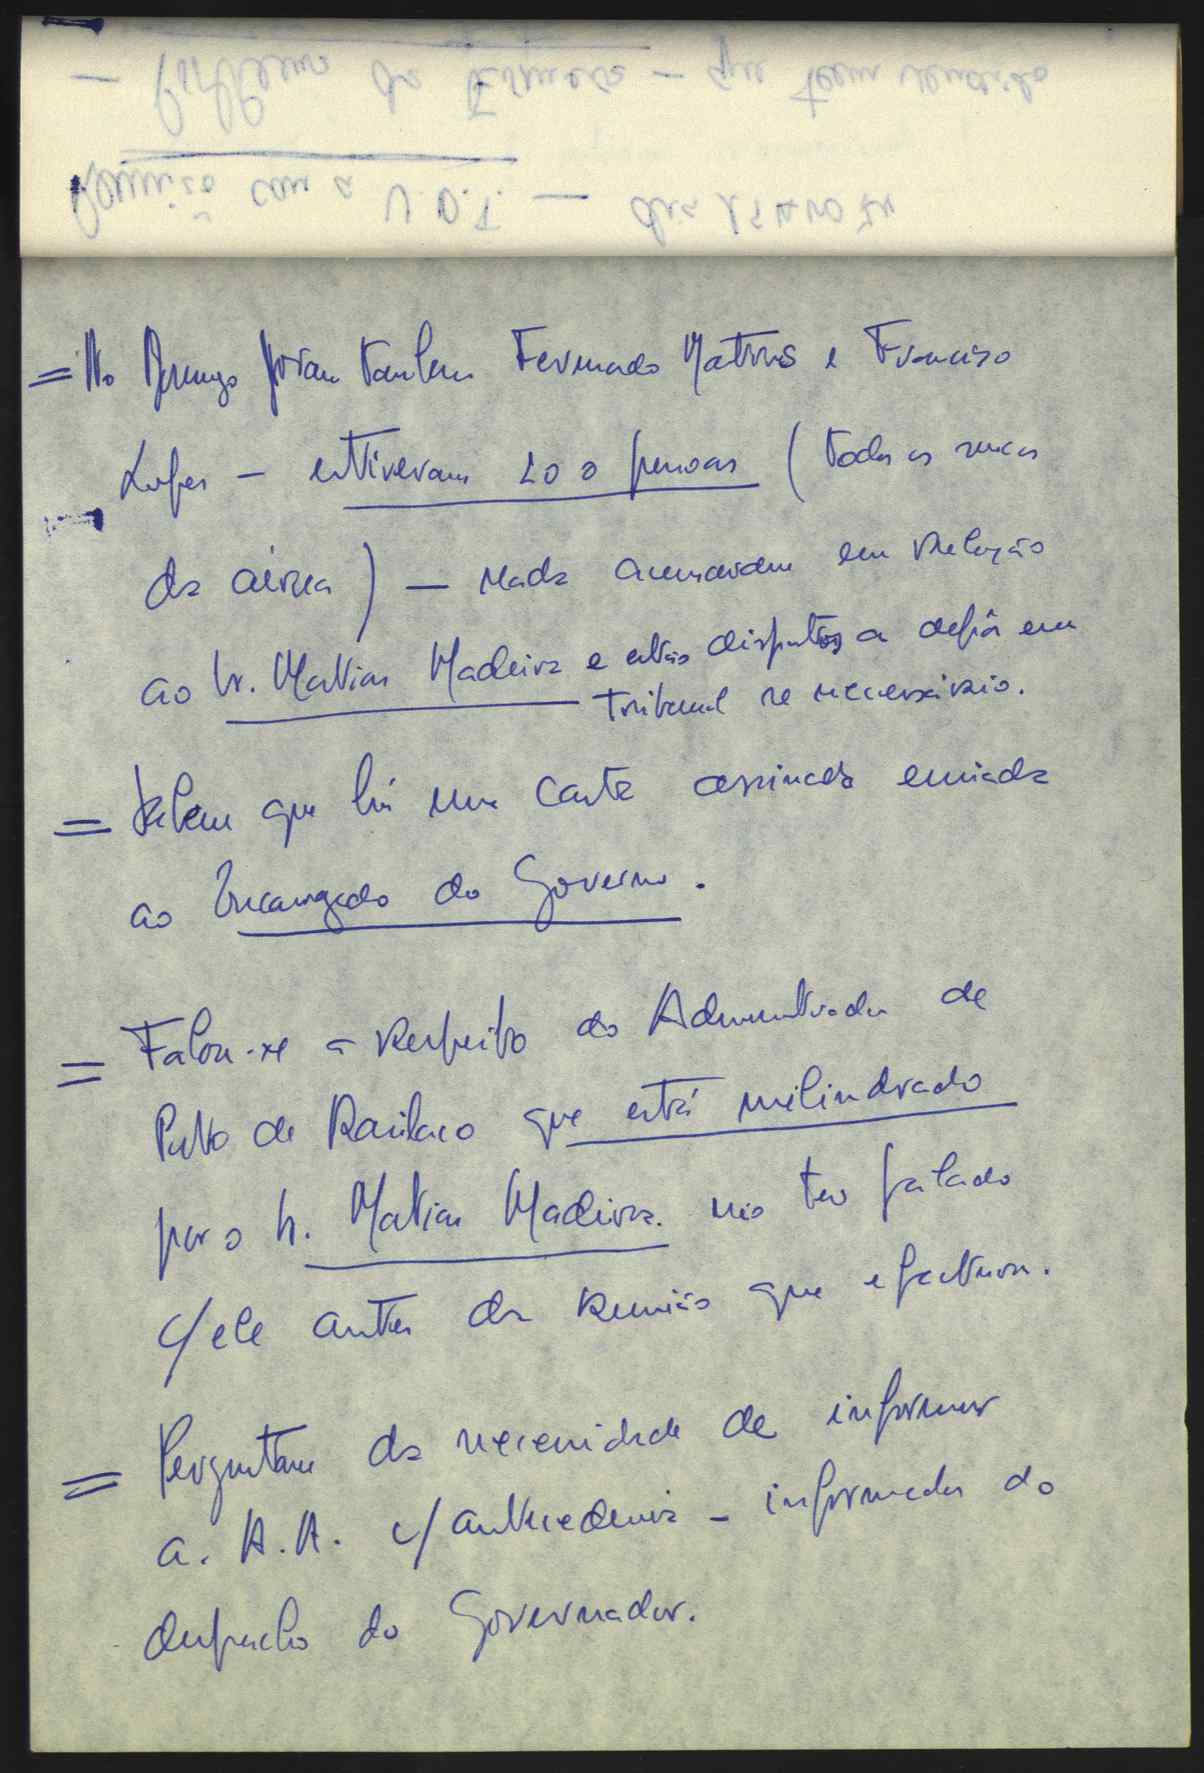 Reunião com a U.D.T. — dia
— Problema da — que teem vendido
= No foram tambem Fernando Matos e Francisco
Lopes — estiveram 100 pessoas (todos os sucos
da aérea) — nada acusaram em relação
ao Sr. Matias Madeira e estão dispostos a depôr em
tribunal se necessário.
= Sabem que há uma carta assinada enviada
ao Encarregado do Governo.
= Falou-se a respeito do Administrador de
Posto de Railaco que está milindrado
por o Sr. Matias Madeira não ter falado
c/ele antes da reunião que efectuou.
= Perguntam da necessidade de informar
a. A.A. c/ antecedencia — informados do
despacho do Governador.